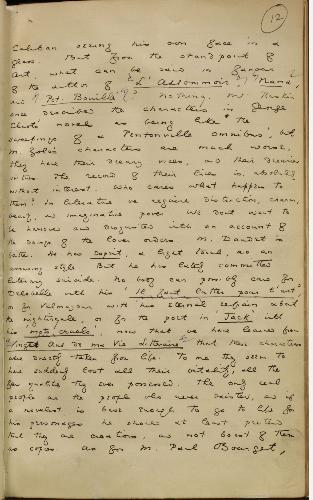 12
Caliban seeing his own face in a
glass. But from the standpoint of
Art, what can be said in favour
of the author of "L'Assommoir", "Nana",
and "Pot-Bouille"? Nothing. Mr Ruskin
once described the characters in George
Eliot's novels as being like the
sweepings of a Pentonville omnibus, but
M. Zola's characters are much worse.
They have their dreary vices, and their drearier
virtues. The record of their lives is absolutely
without interest. Who cares what happens to
them? In literature we require distinction, charm,
beauty, and imaginative power. We don't want to
be harrowed and disgusted with an account of
the doings of the lower orders. M. Daudet is
better. He has esprit, a light touch, and an
amusing style. But he has lately committed
literary suicide. Nobody can possibly care for
Delobelle with his "Il faut lutter pour l'art",
or for Valmajour with his eternal refrain about
the nightingale, or for the poet in "Jack" with
his "mots cruels", now that we have learned from
"Vingt Ans de ma Vie littéraire" that these characters
were directly taken from life. To me they seem to
have suddenly lost all their vitality, all the
few qualities they ever possessed. The only real
people are the people who never existed, and if
a novelist is base enough to go to life for
his personages he should at least pretend
that they are creations, and not boast of them
as copies. As for M. Paul Bourget,